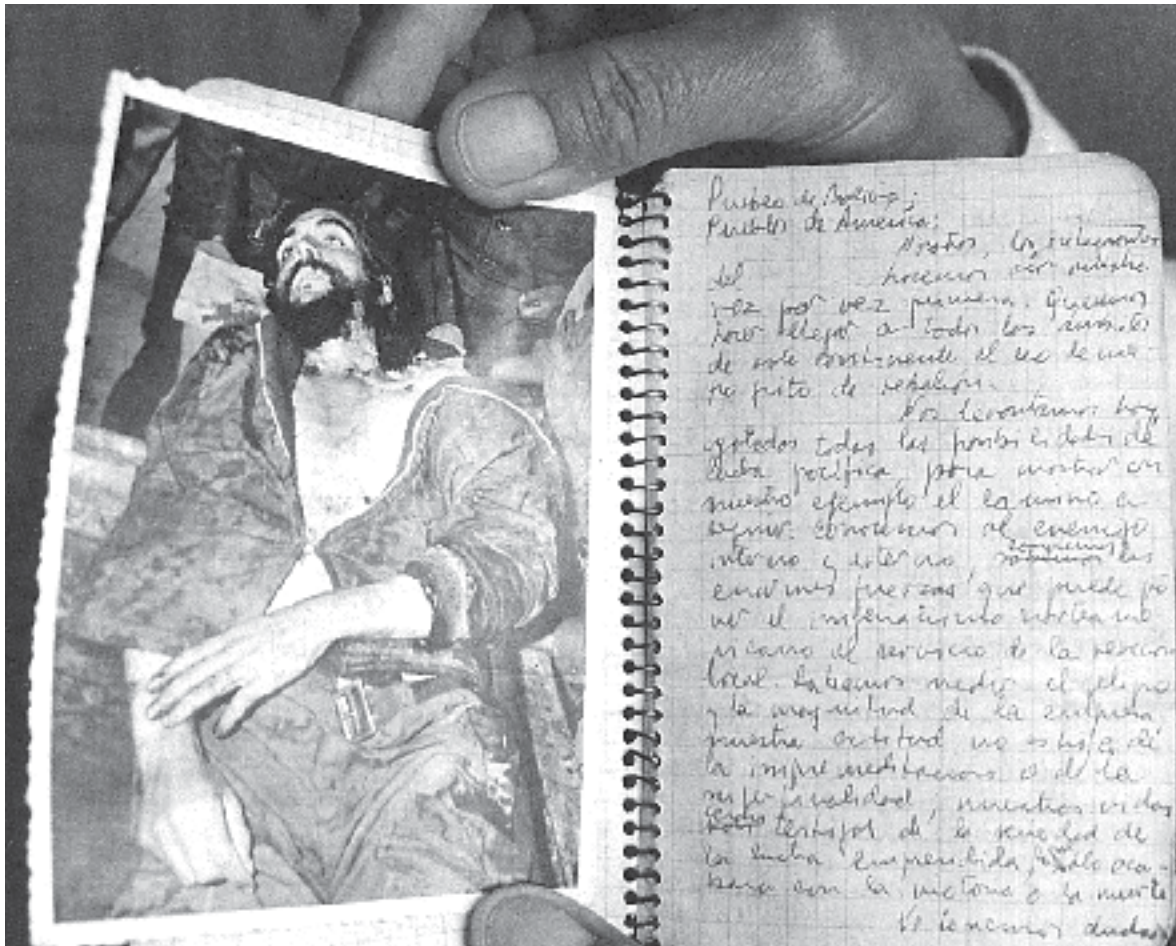 Pueblo de Bolivia;
Pueblos de America:
Nosotros, los integrantes
del hacemos oír nuestra
voz por vez primera. Queremos
hacer llegar a todos los
de este continente el eco de
grito de rebelión.
Nos levantamos hoy,
agotadas todas las posibilidades de
lucha pacífica, para mostrar con
nuestro ejemplo el camino a
seguir. Conocemos al enemigo
interno y externo, las
enormes fuerzas que puede po
ner el imperialismo norteame
ricano al servicio de la reacción
local. Sabemos medir el peligro
y la magnitud de la empresa,
nuestra actitud no es hija de
la impremeditación o de la
superficialidad; nuestras vidas
serán testigos de la seriedad de
la lucha emprendida, que sólo aca-
bará con la victoria o la muerte
No tenemos dudas